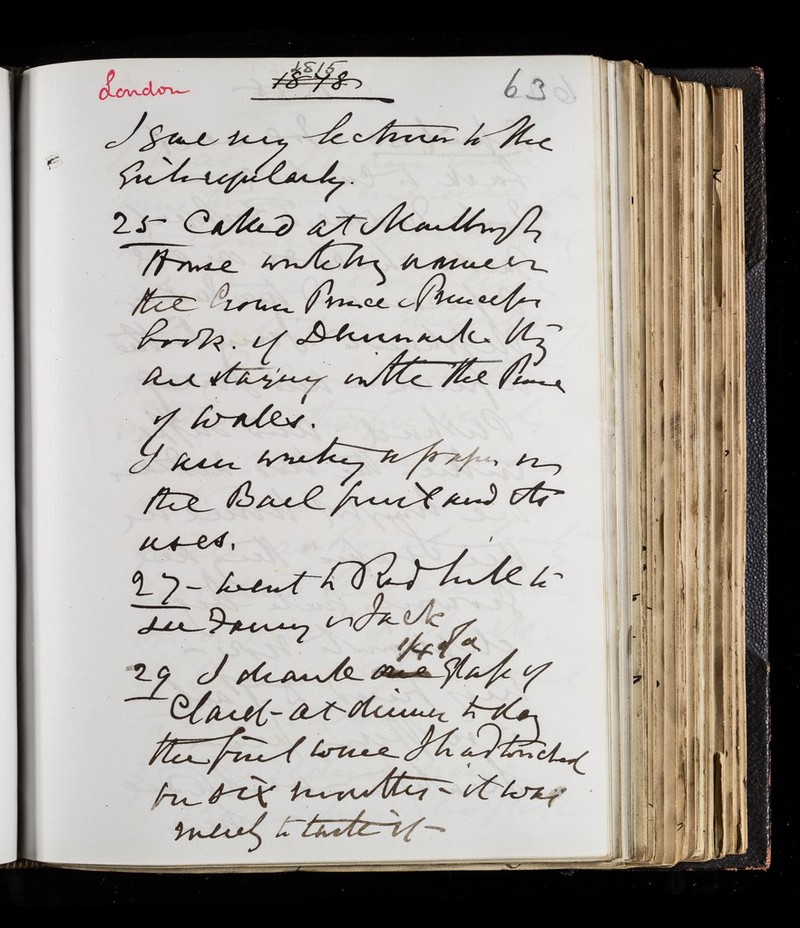 London
1815
1878
63
I gave my lectures to the
regularly.
25 Called at Marlbrogh
House wrote my name in
the Crown Prince & Princess
book. of Denmark. they
are staying with the Prince
of Wales.
I am writing a paper on
the Bael fruit and its
uses.
27 - went to Red hill to
see Fanny & Jack
1/4 of a
29 I drank one glass of
Claret - at dinner to day
the first wine I had touched
for six months - it was
merely to taste it -